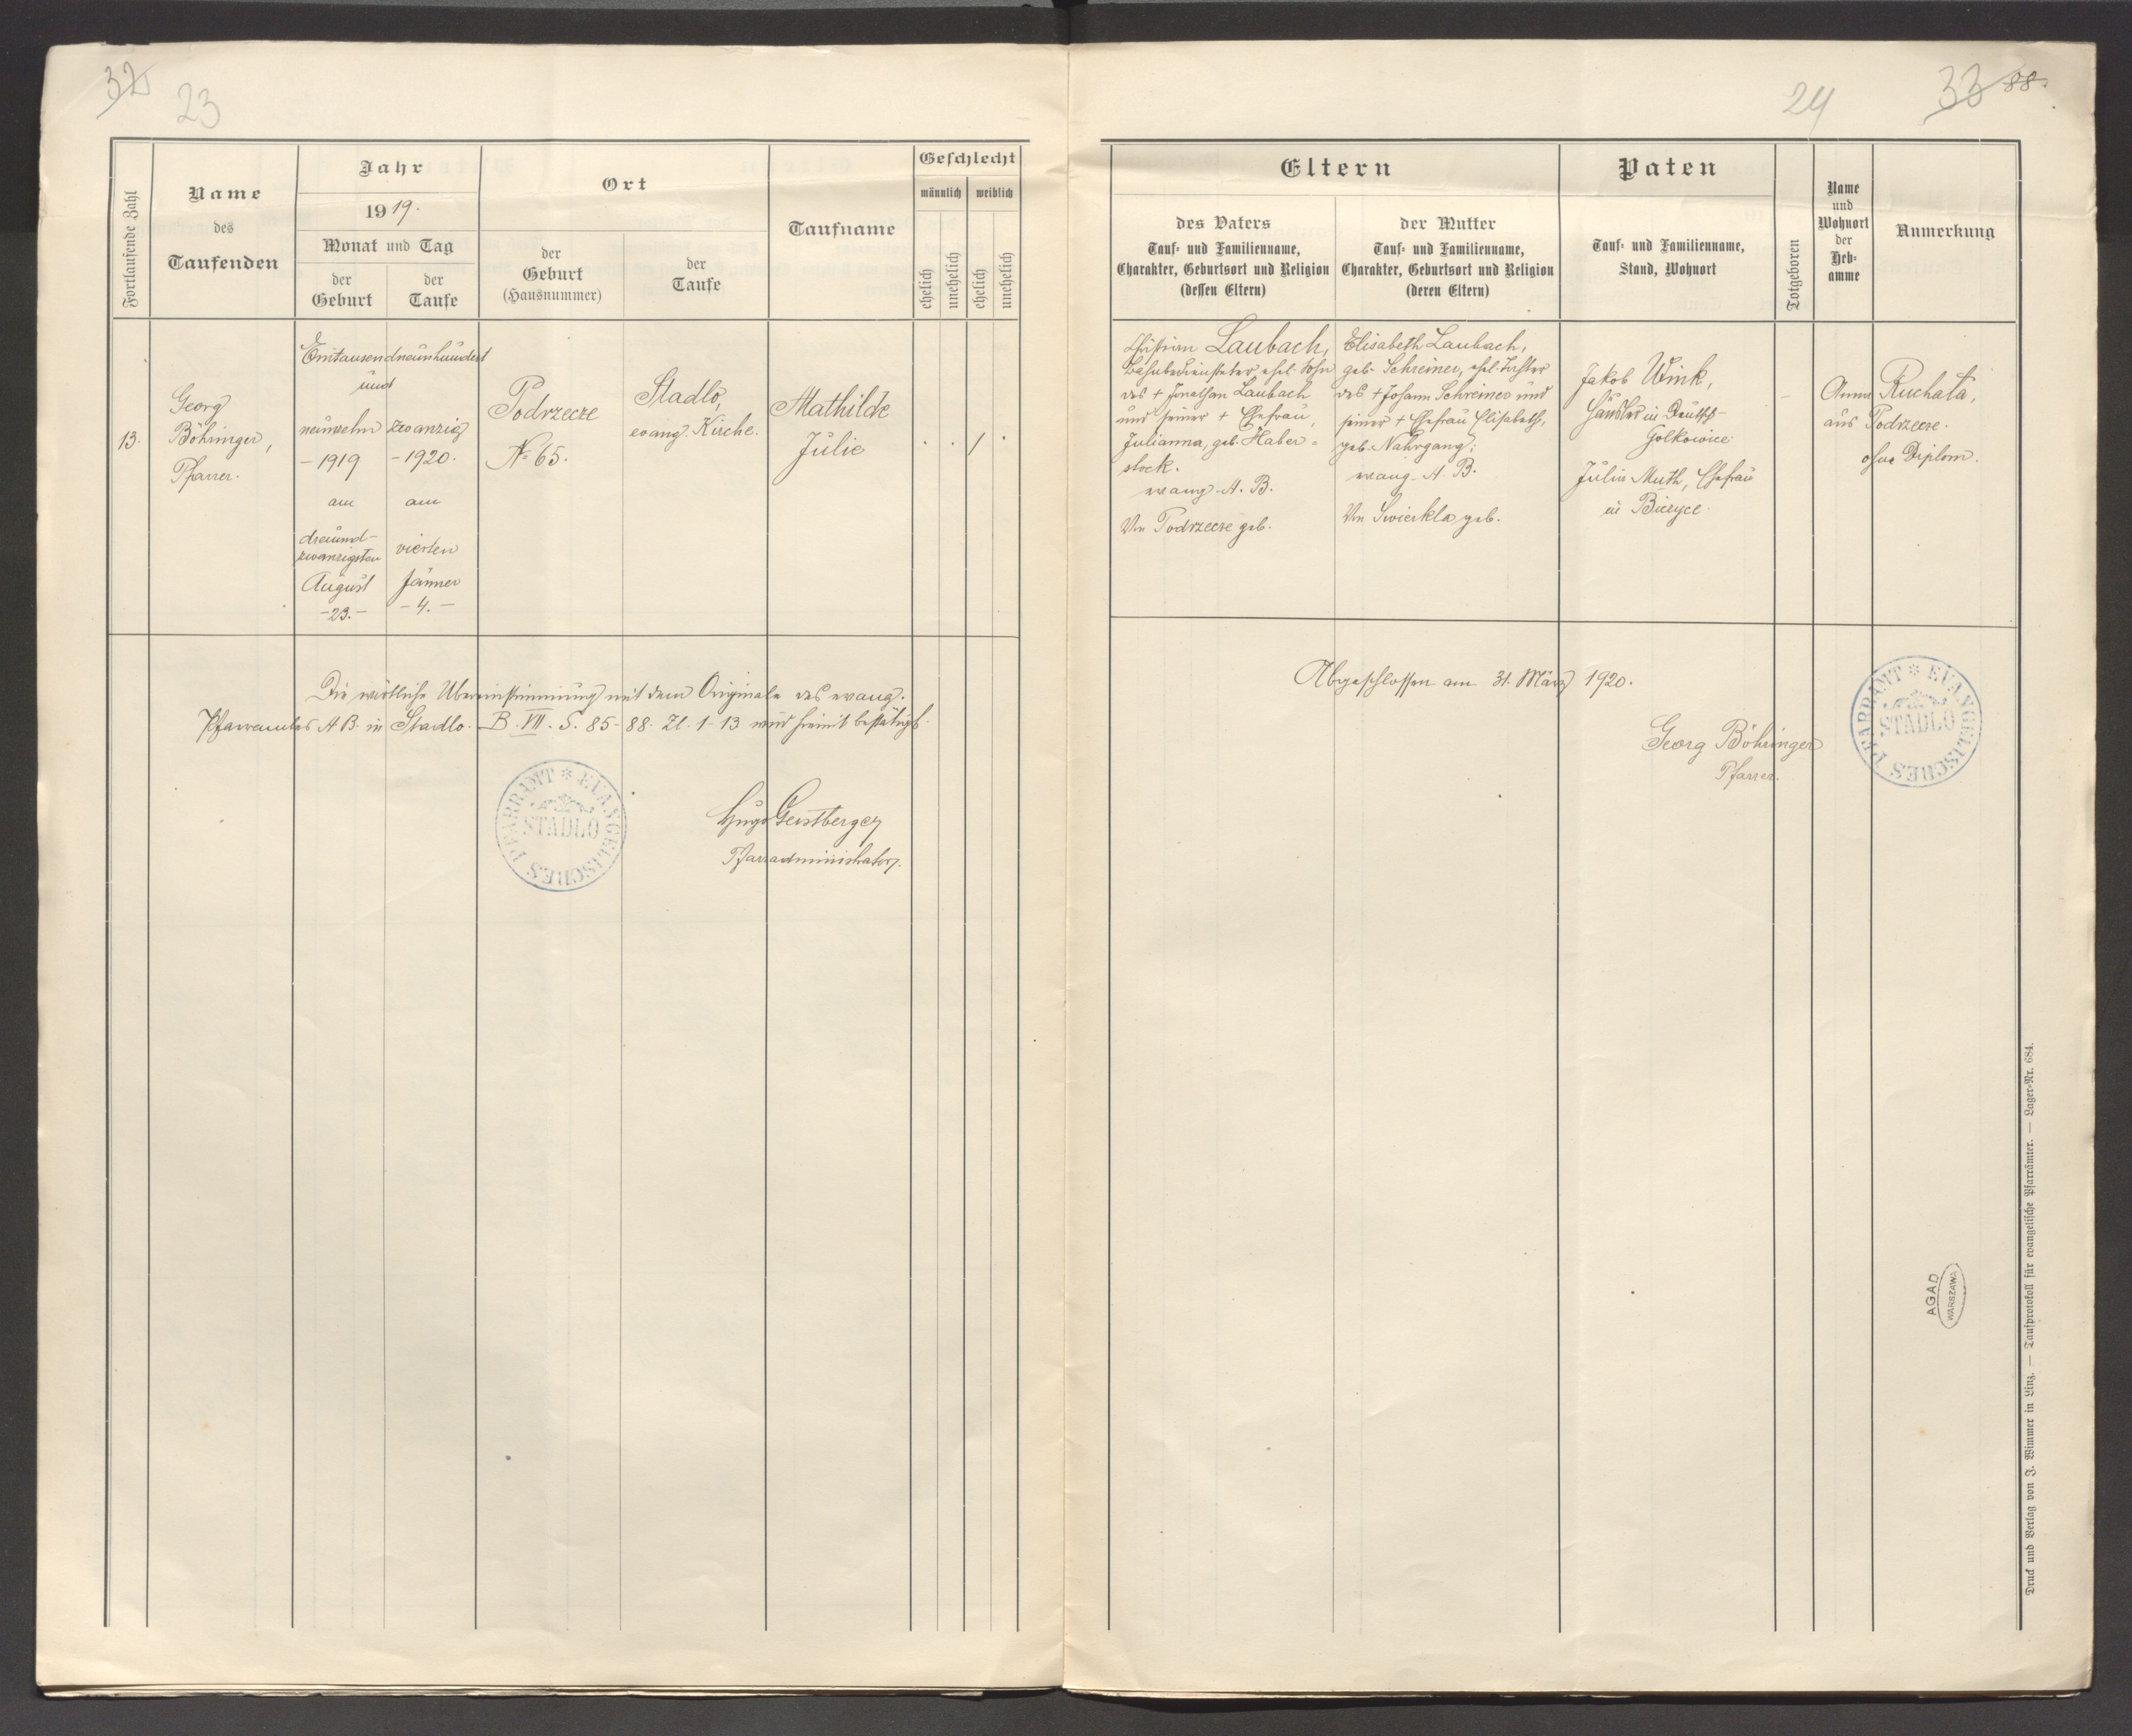 32
23
Fortlaufende Zahl
Name
des
Taufenden
Jahr
1919.
Monat und Tag
der
Geburt
der
Taufe
Ort
der
Geburt
(Hausnummer)
der
Taufe
Taufname
Geschlecht
männlich
weiblich
ehelich
unehelich
ehelich
unehelich
13.
Georg
Böhringer,
Pfarrer.
Eintausendneunhundert
und
neunzehn
- 1919
am
dreiund-
zwanzigsten
August
- 23. -
zwanzig
- 1920.
am
vierten
Jänner
- 4. -
Podrzecze
No 65.
Stadlo,
evang. Kirche.
Mathilde
Julie
/
Die wörtliche Übereinstimmung mit dem Originale des evang.
Pfarramtes A B. in Stadlo. B. VII. S. 85-88. Zl. 1-13 wird hiemit bestätigt.
EVANGELISCHES PFARRAMT
STADLO
Hugo Gerstberger
Pfarradministrator.
24
33
88.
Eltern
des Vaters
Tauf- und Familienname,
Charakter, Geburtsort und Religion
(dessen Eltern)
der Mutter
Tauf- und Familienname,
Charakter, Geburtsort und Religion
(deren Eltern)
Paten
Tauf- und Familienname,
Stand, Wohnort
Totgeboren
Name
und
Wohnort
der
Heb-
amme
Anmerkung
Christian Laubach,
Bahnbediensteter, ehel. Sohn
des + Jonathan Laubach
und seiner + Ehefrau,
Julianna, geb. Haber=
stock.
evang. A. B.
Von Podrzecze geb.
Elisabeth Laubach,
geb. Schreiner, ehel. Tochter
des + Johann Schreiner und
seiner + Ehefrau Elisabeth,
geb. Nahrgang;
evang. A. B.
Von Swierkla geb.
Jakob Wink,
Häusler in Deutsch-
Golkowice.
Julia Muth, Ehefrau
in Biczyce.
Anna Ruchała,
aus Podrzecze.
ohne Diplom.
Abgeschlossen am 31. März 1920.
Georg Böhringer
Pfarrer.
EVANGELISCHES PFARRAMT
STADLO
AGAD
WARSZAWA
Druck und Verlag von J. Wimmer in Linz. — Taufprotokoll für evangelische Pfarrämter. — Lager-Nr. 684.